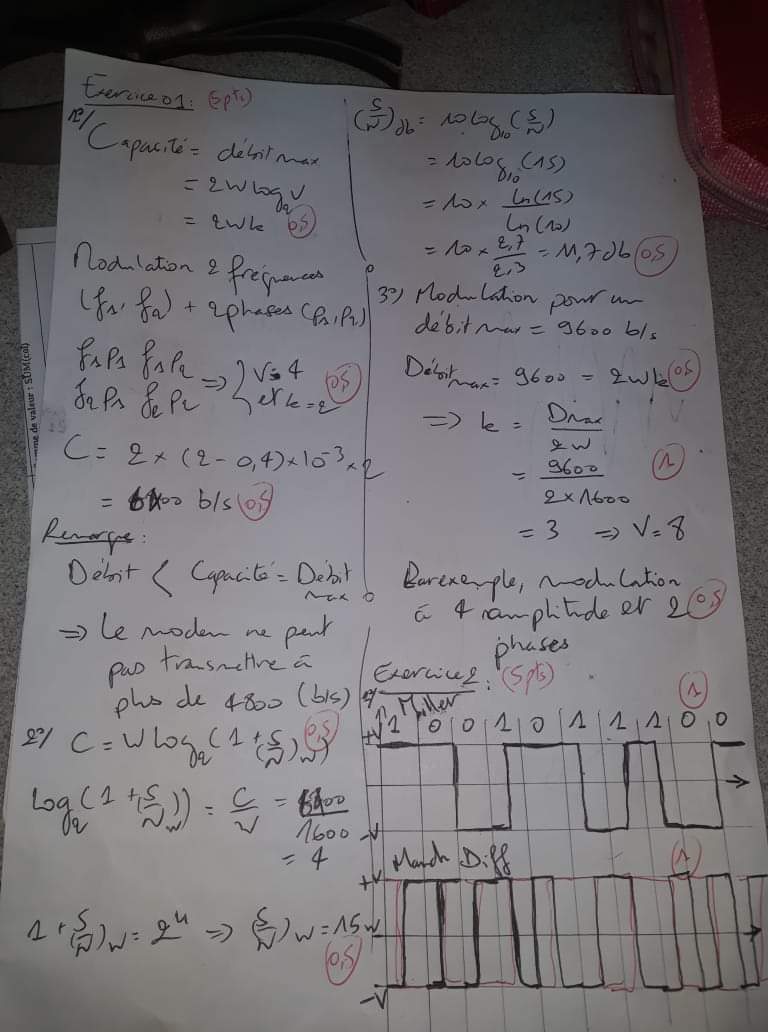 Exercice 01: (5pts)
1°/
Capacité = débit max
= 2W log₂V
= 2Wk 0,5
Modulation 2 fréquences
(f₁, f₂) + 2 phases (p₁, p₂)
f₁p₁ f₁p₂
f₂p₁ f₂p₂ => { V=4 et k=2 0,5
C = 2 × (2 - 0,4) × 10⁻³ × 2
= 6400 b/s 0,5
Remarque:
Débit < Capacité = Débit max
=> Le modem ne peut
pas transmettre à
plus de 4800 (b/s)
2°/ C = W log₂(1 + (S/N)w) 0,5
Log₂(1 + (S/N)w) = C/W = 6400/1600
= 4
1 + (S/N)w = 2⁴ => (S/N)w = 15w
0,5
(S/N)db = 10 log₁₀(S/N)
= 10 log₁₀(15)
= 10 × Ln(15)/Ln(10)
= 10 × 2,7/2,3 = 11,7 db 0,5
3°/ Modulation pour un
débit max = 9600 b/s
Débit max = 9600 = 2Wk 0,5
=> k = Dmax/2W
= 9600/2×1600 1
= 3 => V=8
Par exemple, modulation
à 4 amplitude et 2 0,5
phases
Exercice 2: (5pts)
1°/ Miller 1
1 0 0 1 0 1 1 1 0 0
+V
-V
Manch Diff 1
+V
-V